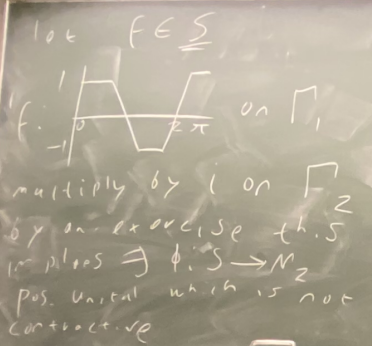 let f ∈ S
1
f: 0 2π on Γ₁
-1
multiply by i on Γ₂
by an exercise this
implies ∃ φ: S → M₂
pos. unital which is not
contractive